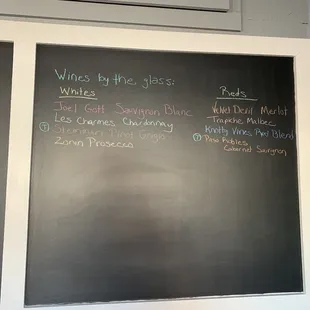 Wines by the glass:
Whites
Joel Gott Sauvignon Blanc
Les Charmes Chardonnay
Pinot Grigio
Zonin Prosecco
Reds
Velvet Devil Merlot
Trapiche Malbec
Knotty Vines Red Blend
Paso Robles
Cabernet Sauvignon